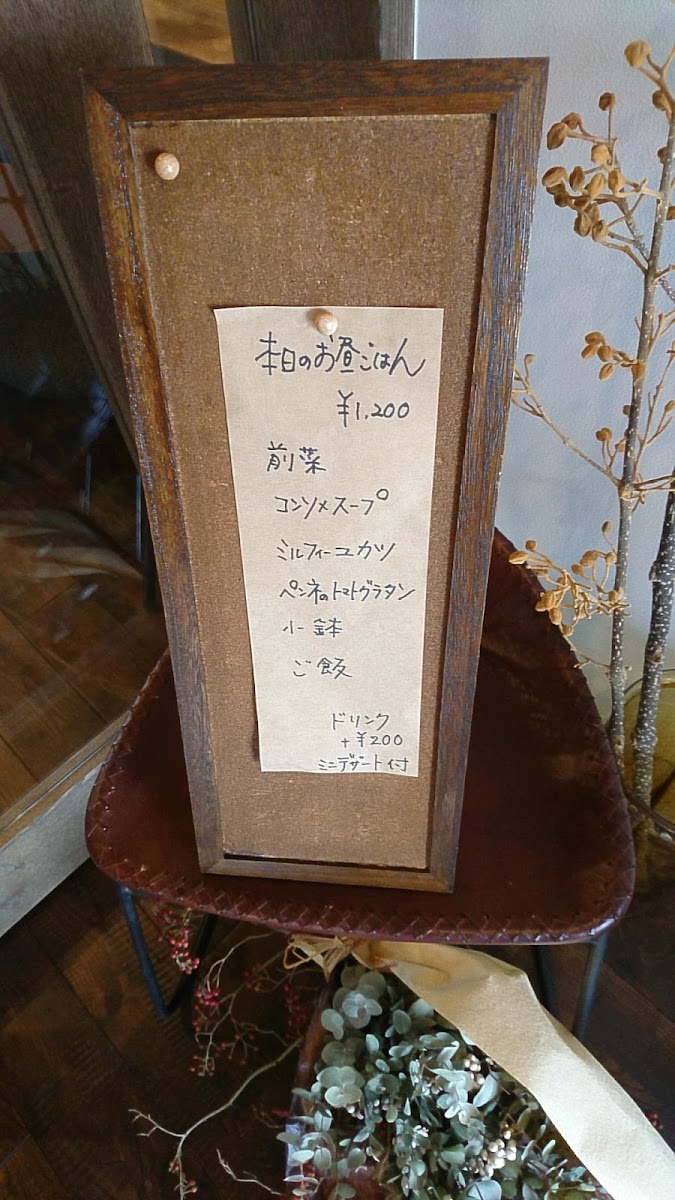 本日のお昼ごはん
¥1,200
前菜
コンソメスープ
ミルフィーユカツ
ペンネのトマトグラタン
小鉢
ご飯
ドリンク
+¥200
ミニデザート付